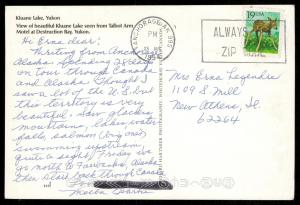 Kluane Lake, Yukon
View of beautiful Kluane Lake seen from Talbot Arm
Motel at Destination Bay, Yukon.
Hi Erna dear!
Writing from
Alaska. Spending 28 days
on tour through Canada
and Alaska. Thought I
saw a lot of the U.S. but
this territory is very
beautiful. Saw glaciers,
mountains, lakes, water
falls, salmon (big ones)
swimming upstream,
quite a sight. Friday we
go north to Fairbanks, Alaska,
then start back through Canada.
ANCHORAGE AK 995
PM
1991
ALWAYS
ZIP CODE
19
USA
Mrs Erna
1109 S Mill
New Athens, Il
62264